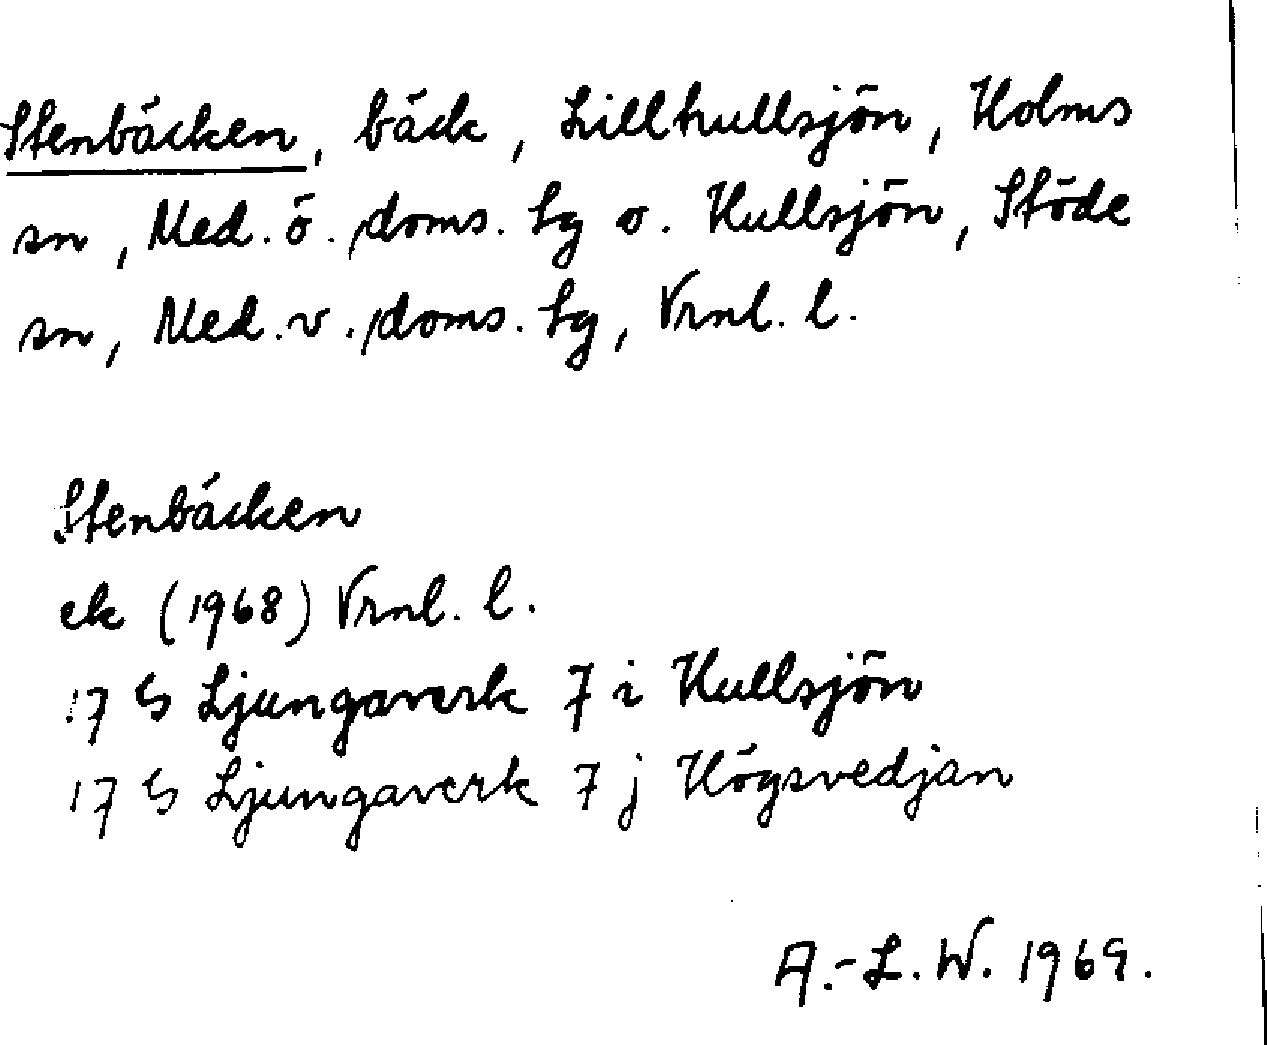 Stenbäcken, bäck, Lillhullsjön, Holms
sn, Med. ö. doms. tg o. Hullsjön, Stöde
sn, Med. v. doms. tg, Vrnl. l.
Stenbäcken
ek (1968) Vrnl. l.
17 G Ljungaverk 7 i Hullsjön
17 G Ljungaverk 7 j Högsvedjan
A.-L. W. 1969.